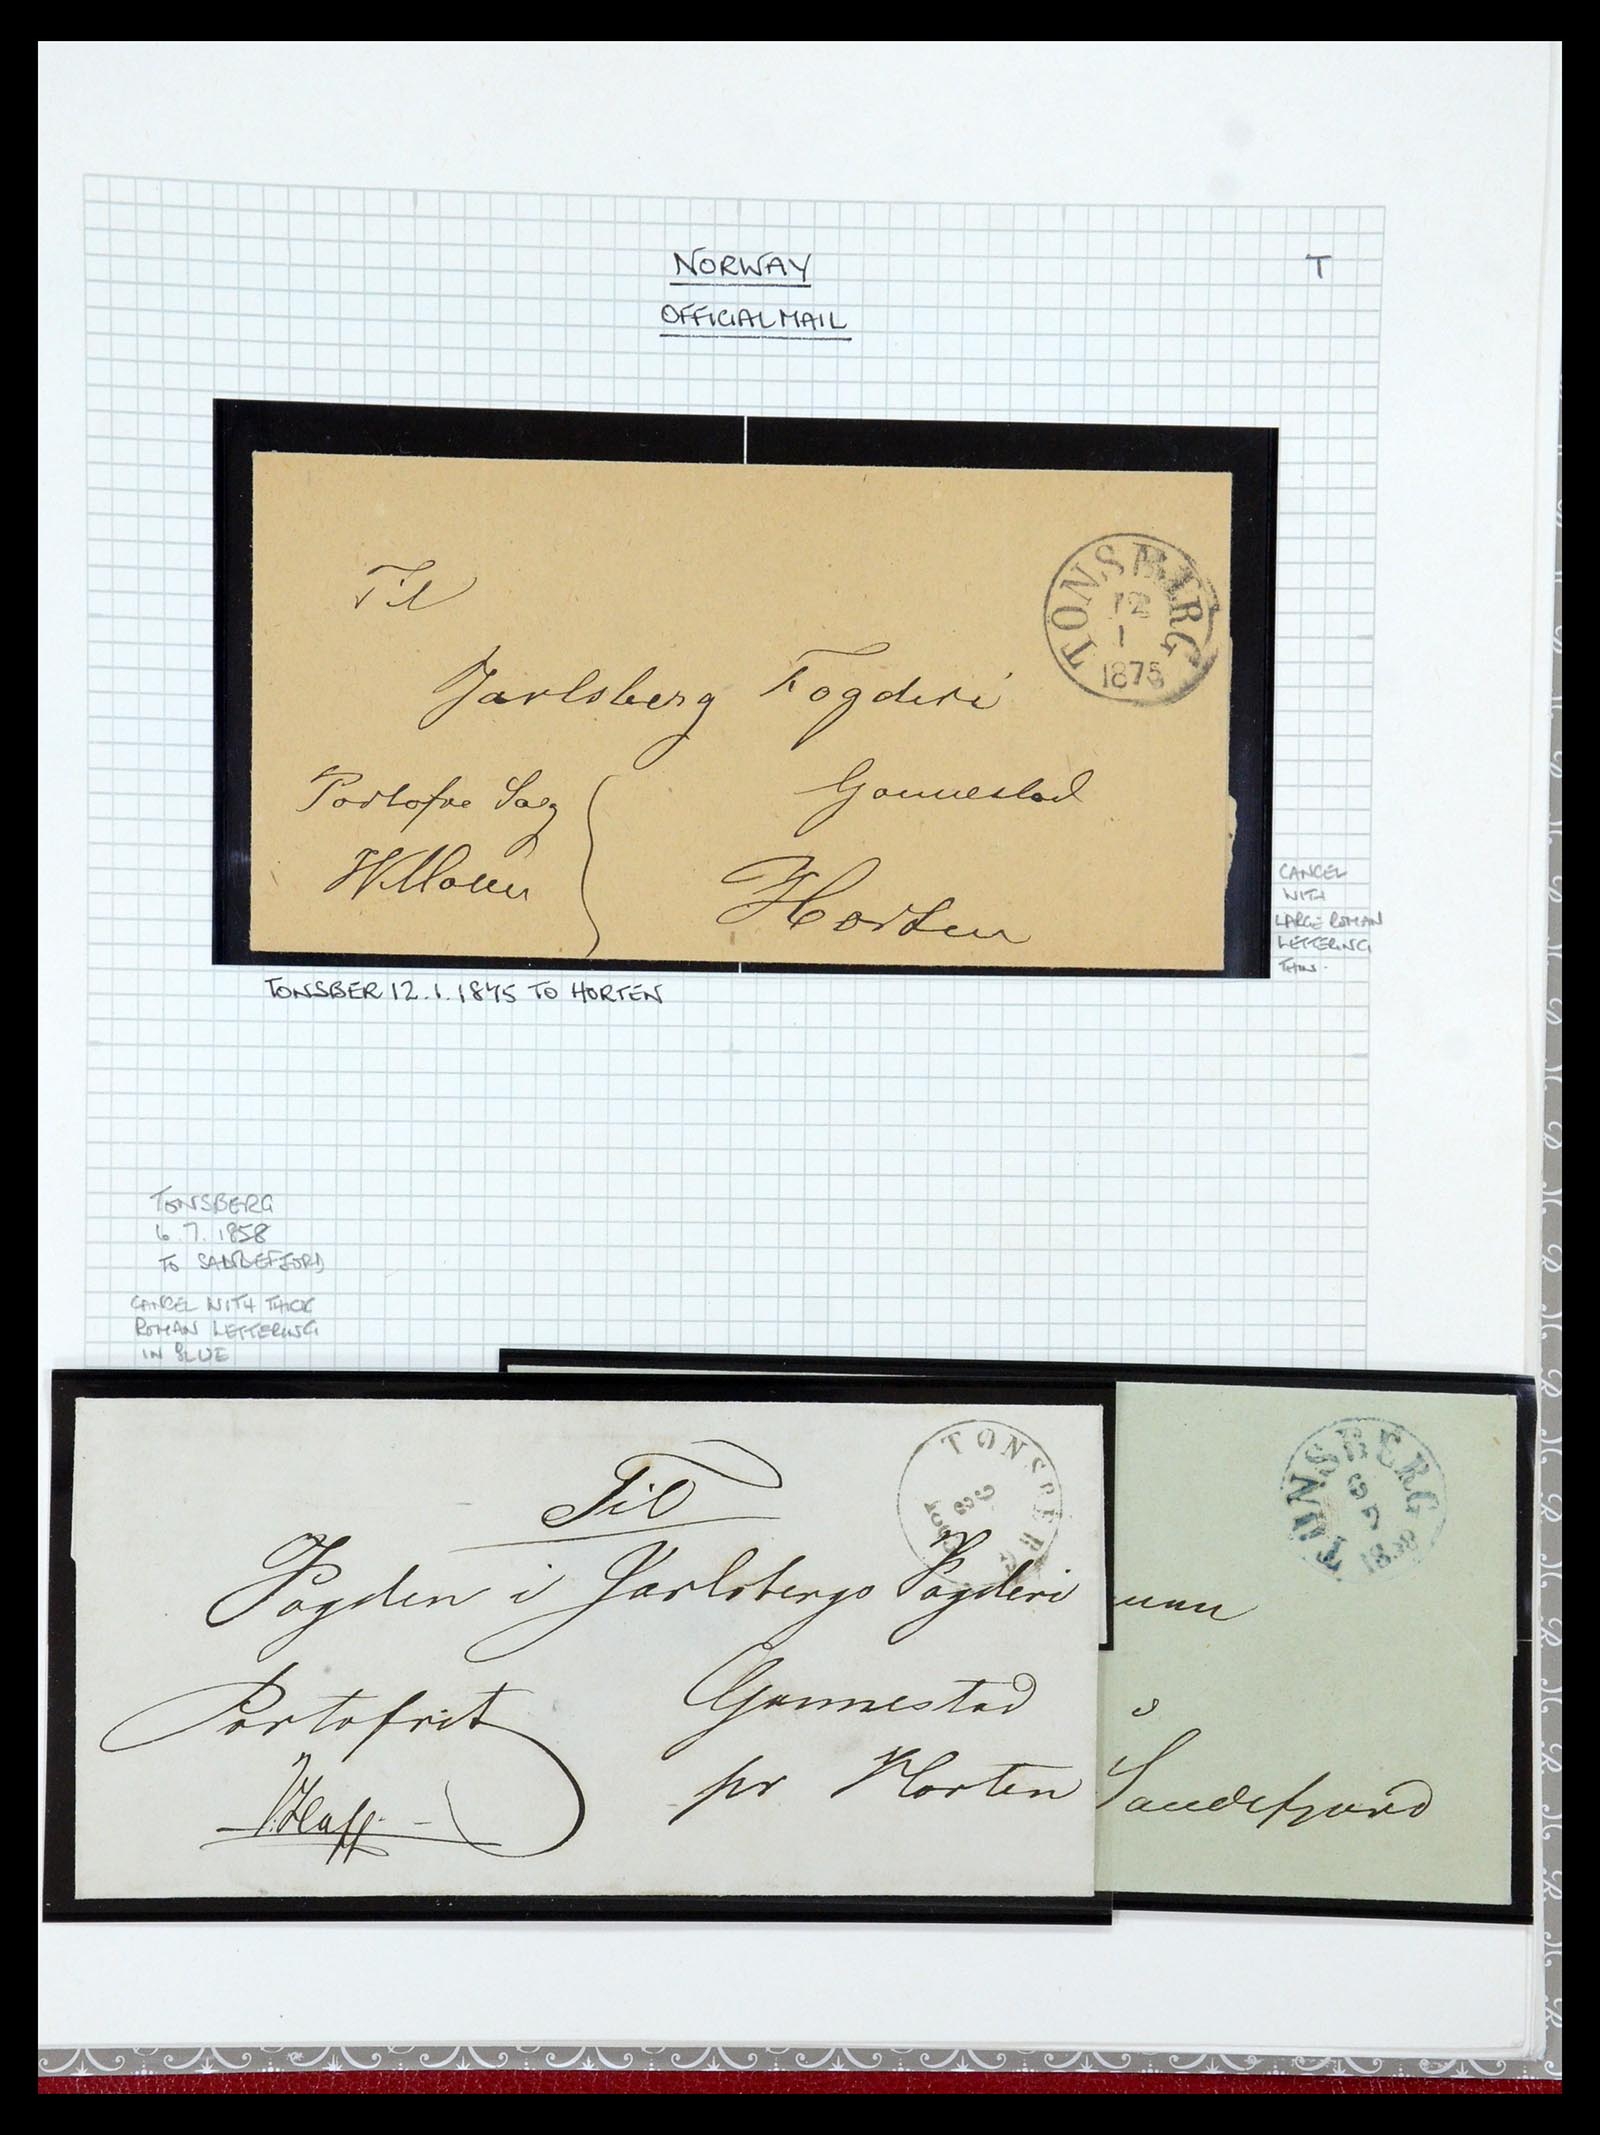 NORWAY
T
OFFICIAL MAIL
TONSBERG
12
1
1875
Til
Jarlsberg Fogderi
Portofri Sag
Gounestad
Horten
CANCEL
WITH
LARGE ROMAN
LETTERING
THIN.
TONSBER 12.1.1875 TO HORTEN
TONSBERG
6.7.1858
TO SANDEFJORD
CANCEL WITH THICK
ROMAN LETTERING
IN BLUE
TONSBERG
Til
Fogden i Jarlsbergs Fogderi
Portofrit
Gunnestad
pr Horten
TONSBERG
6 7
1858
Sandefjord